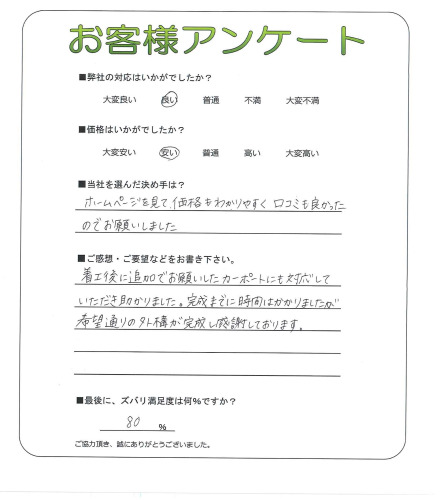 お客様アンケート
■弊社の対応はいかがでしたか？
大変良い 良い 普通 不満 大変不満
■価格はいかがでしたか？
大変安い 安い 普通 高い 大変高い
■当社を選んだ決め手は？
ホームページを見て価格もわかりやすく口コミも良かった
のでお願いしました
■ご感想・ご要望などをお書き下さい。
着工後に追加でお願いしたカーポートにも対応して
いただき助かりました。完成までに時間はかかりましたが
希望通りの外構が完成し感謝しております。
■最後に、ズバリ満足度は何％ですか？
80 ％
ご協力頂き、誠にありがとうございました。